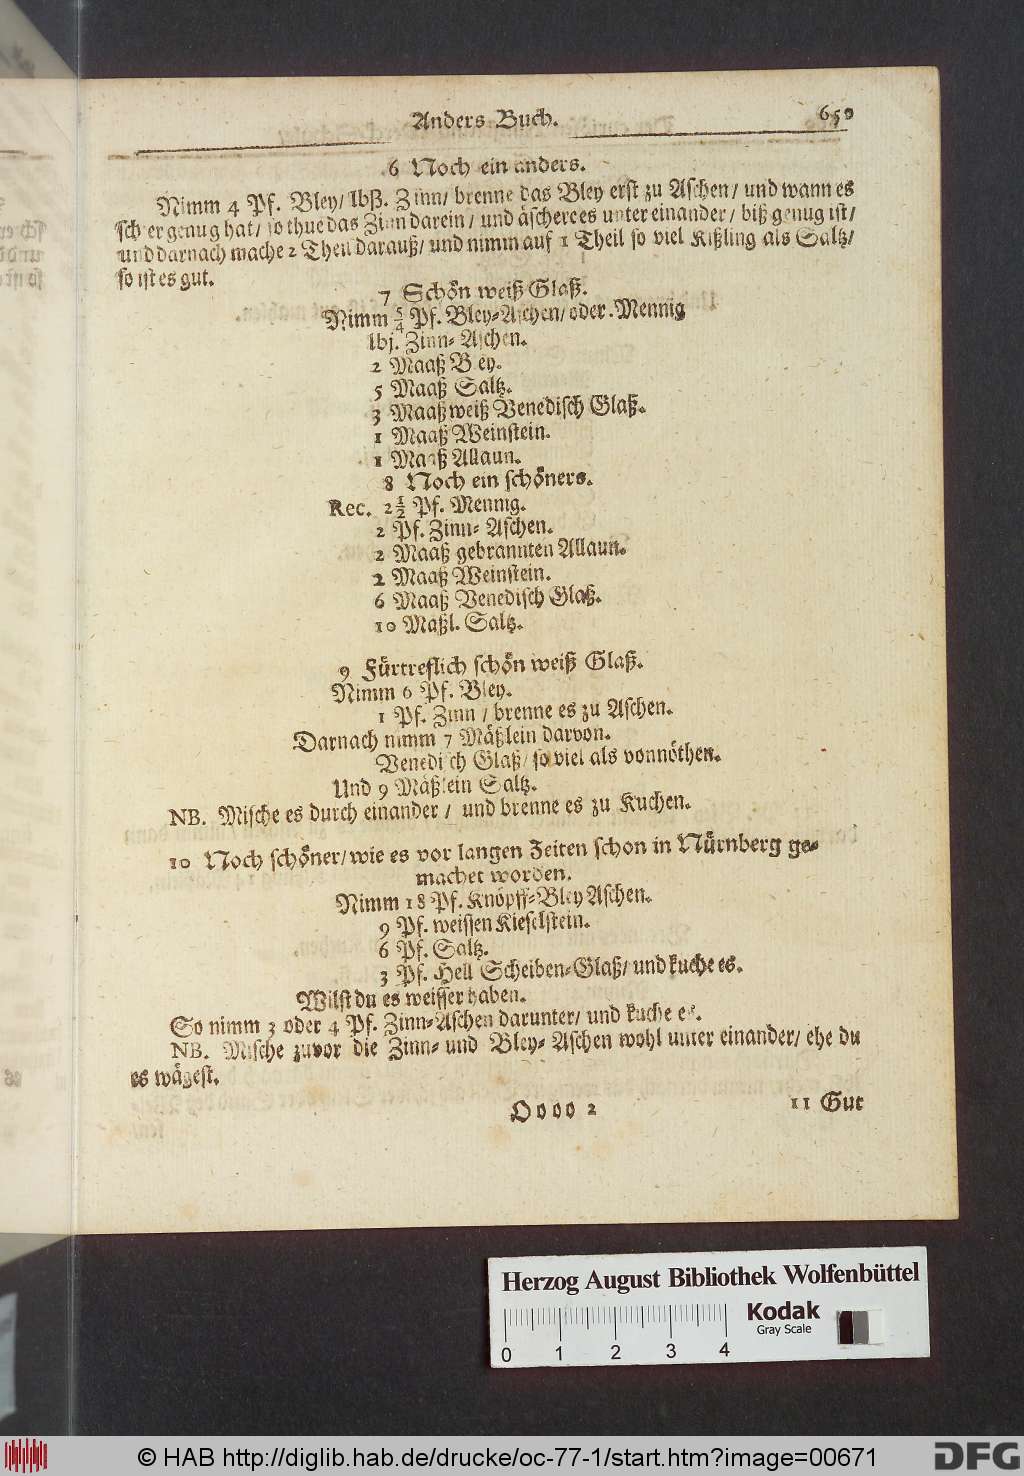 Anders Buch. 659
6 Noch ein anders.
Nimm 4 Pf. Bley/ lbß. Zinn/ brenne das Bley erst zu Aschen/ und wann es
schier genug hat/ so thue das Zinn darein/ und äscherces unter einander/ biß genug ist/
und darnach mache 2 Theil darauß/ und nimm auf 1 Theil so viel Kißling als Saltz/
so ist es gut.
7 Schön weiß Glaß.
Nimm 5/4 Pf. Bley-Aschen/ oder Mennig
lbj. Zinn-Aschen.
2 Maaß Bley.
5 Maaß Saltz.
3 Maaß weiß Venedisch Glaß.
1 Maaß Weinstein.
1 Maaß Allaun.
8 Noch ein schöners.
Rec. 2 1/2 Pf. Mennig.
2 Pf. Zinn-Aschen.
2 Maaß gebrannten Allaun.
2 Maaß Weinstein.
6 Maaß Venedisch Glaß.
10 Maßl. Saltz.
9 Fürtreflich schön weiß Glaß.
Nimm 6 Pf. Bley.
1 Pf. Zinn/ brenne es zu Aschen.
Darnach nimm 7 Mäßlein darvon.
Venedisch Glaß/ so viel als vonnöthen.
Und 9 Mäßlein Saltz.
NB. Mische es durch einander/ und brenne es zu Kuchen.
10 Noch schöner/ wie es vor langen Zeiten schon in Nürnberg ge-
machet worden.
Nimm 18 Pf. Knöpff-Bley Aschen.
9 Pf. weissen Kieselstein.
6 Pf. Saltz.
3 Pf. Hell Scheiben-Glaß/ und kuche es.
Wilst du es weisser haben.
So nimm 3 oder 4 Pf. Zinn-Aschen darunter/ und kuche es.
NB. Mische zuvor die Zinn- und Bley-Aschen wohl unter einander/ ehe du
es wägest.
Oooo 2 11 Gut
Herzog August Bibliothek Wolfenbüttel
Kodak
Gray Scale
0 1 2 3 4
© HAB http://diglib.hab.de/drucke/oc-77-1/start.htm?image=00671
DFG